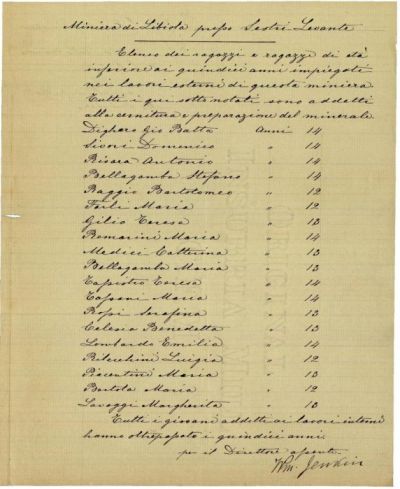 Miniera di Libiola presso Sestri Levante
Elenco dei ragazzi e ragazze di età
inferiore ai quindici anni impiegati
nei lavori esterni di questa miniera
Tutti i qui sotto notati sono addetti
alla cernitura e preparazione del minerale
Dighero Gio Batta Anni 14
Sivori Domenico " 14
Rissea Antonio " 14
Bellagamba Stefano " 14
Baggio Bartolomeo " 12
Forli Maria " 12
Gilio Teresa " 13
Bemarini Maria " 14
Medici Catterina " 13
Bellagamba Maria " 13
Tassistro Teresa " 14
Tassani Maria " 14
Rossi Serafina " 13
Celesia Benedetta " 13
Lombardo Emilia " 14
Luigia " 12
Piacentini Maria " 13
Bertola Maria " 12
Lavaggi Margherita " 13
Tutti i giovani addetti ai lavori interni
hanno oltrepassato i quindici anni.
per il Direttore assente
Wm. Jenkin